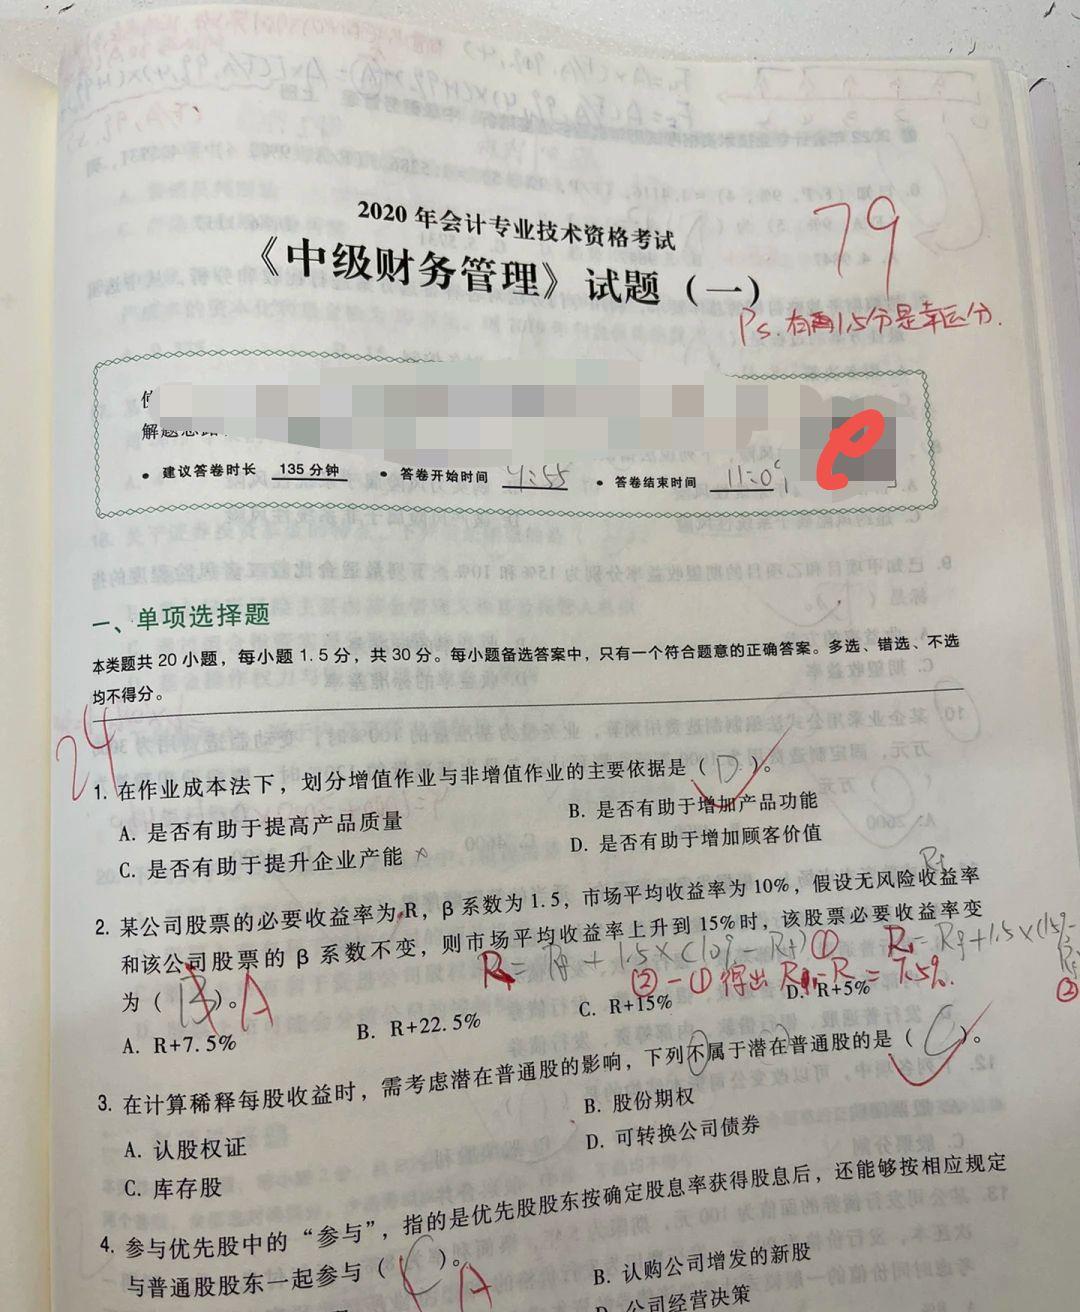 2020 年会计专业技术资格考试
《中级财务管理》试题（一）
79
Ps.有两1.5分是幸运分.
解题思路
• 建议答卷时长 135 分钟 • 答卷开始时间 • 答卷结束时间
一、单项选择题
本类题共 20 小题，每小题 1.5 分，共 30 分。每小题备选答案中，只有一个符合题意的正确答案。多选、错选、不选
均不得分。
24
1. 在作业成本法下，划分增值作业与非增值作业的主要依据是（ D ）。
A. 是否有助于提高产品质量 B. 是否有助于增加产品功能
C. 是否有助于提升企业产能 × D. 是否有助于增加顾客价值
Rf
2. 某公司股票的必要收益率为 R，β 系数为 1.5，市场平均收益率为 10%，假设无风险收益率
和该公司股票的 β 系数不变，则市场平均收益率上升到 15% 时，该股票必要收益率变
R = Rf + 1.5×(10% - Rf) ① R1 = Rf + 1.5×(15% - Rf) ②
为（ B ）。A ② - ① 得出 R1 - R = 7.5%.
A. R+7.5% B. R+22.5% C. R+15% D. R+5%
3. 在计算稀释每股收益时，需考虑潜在普通股的影响，下列不属于潜在普通股的是（ C ）。
A. 认股权证 B. 股份期权
C. 库存股 D. 可转换公司债券
4. 参与优先股中的“参与”，指的是优先股股东按确定股息率获得股息后，还能够按相应规定
与普通股股东一起参与（ C ）。A
B. 认购公司增发的新股
D. 公司经营决策